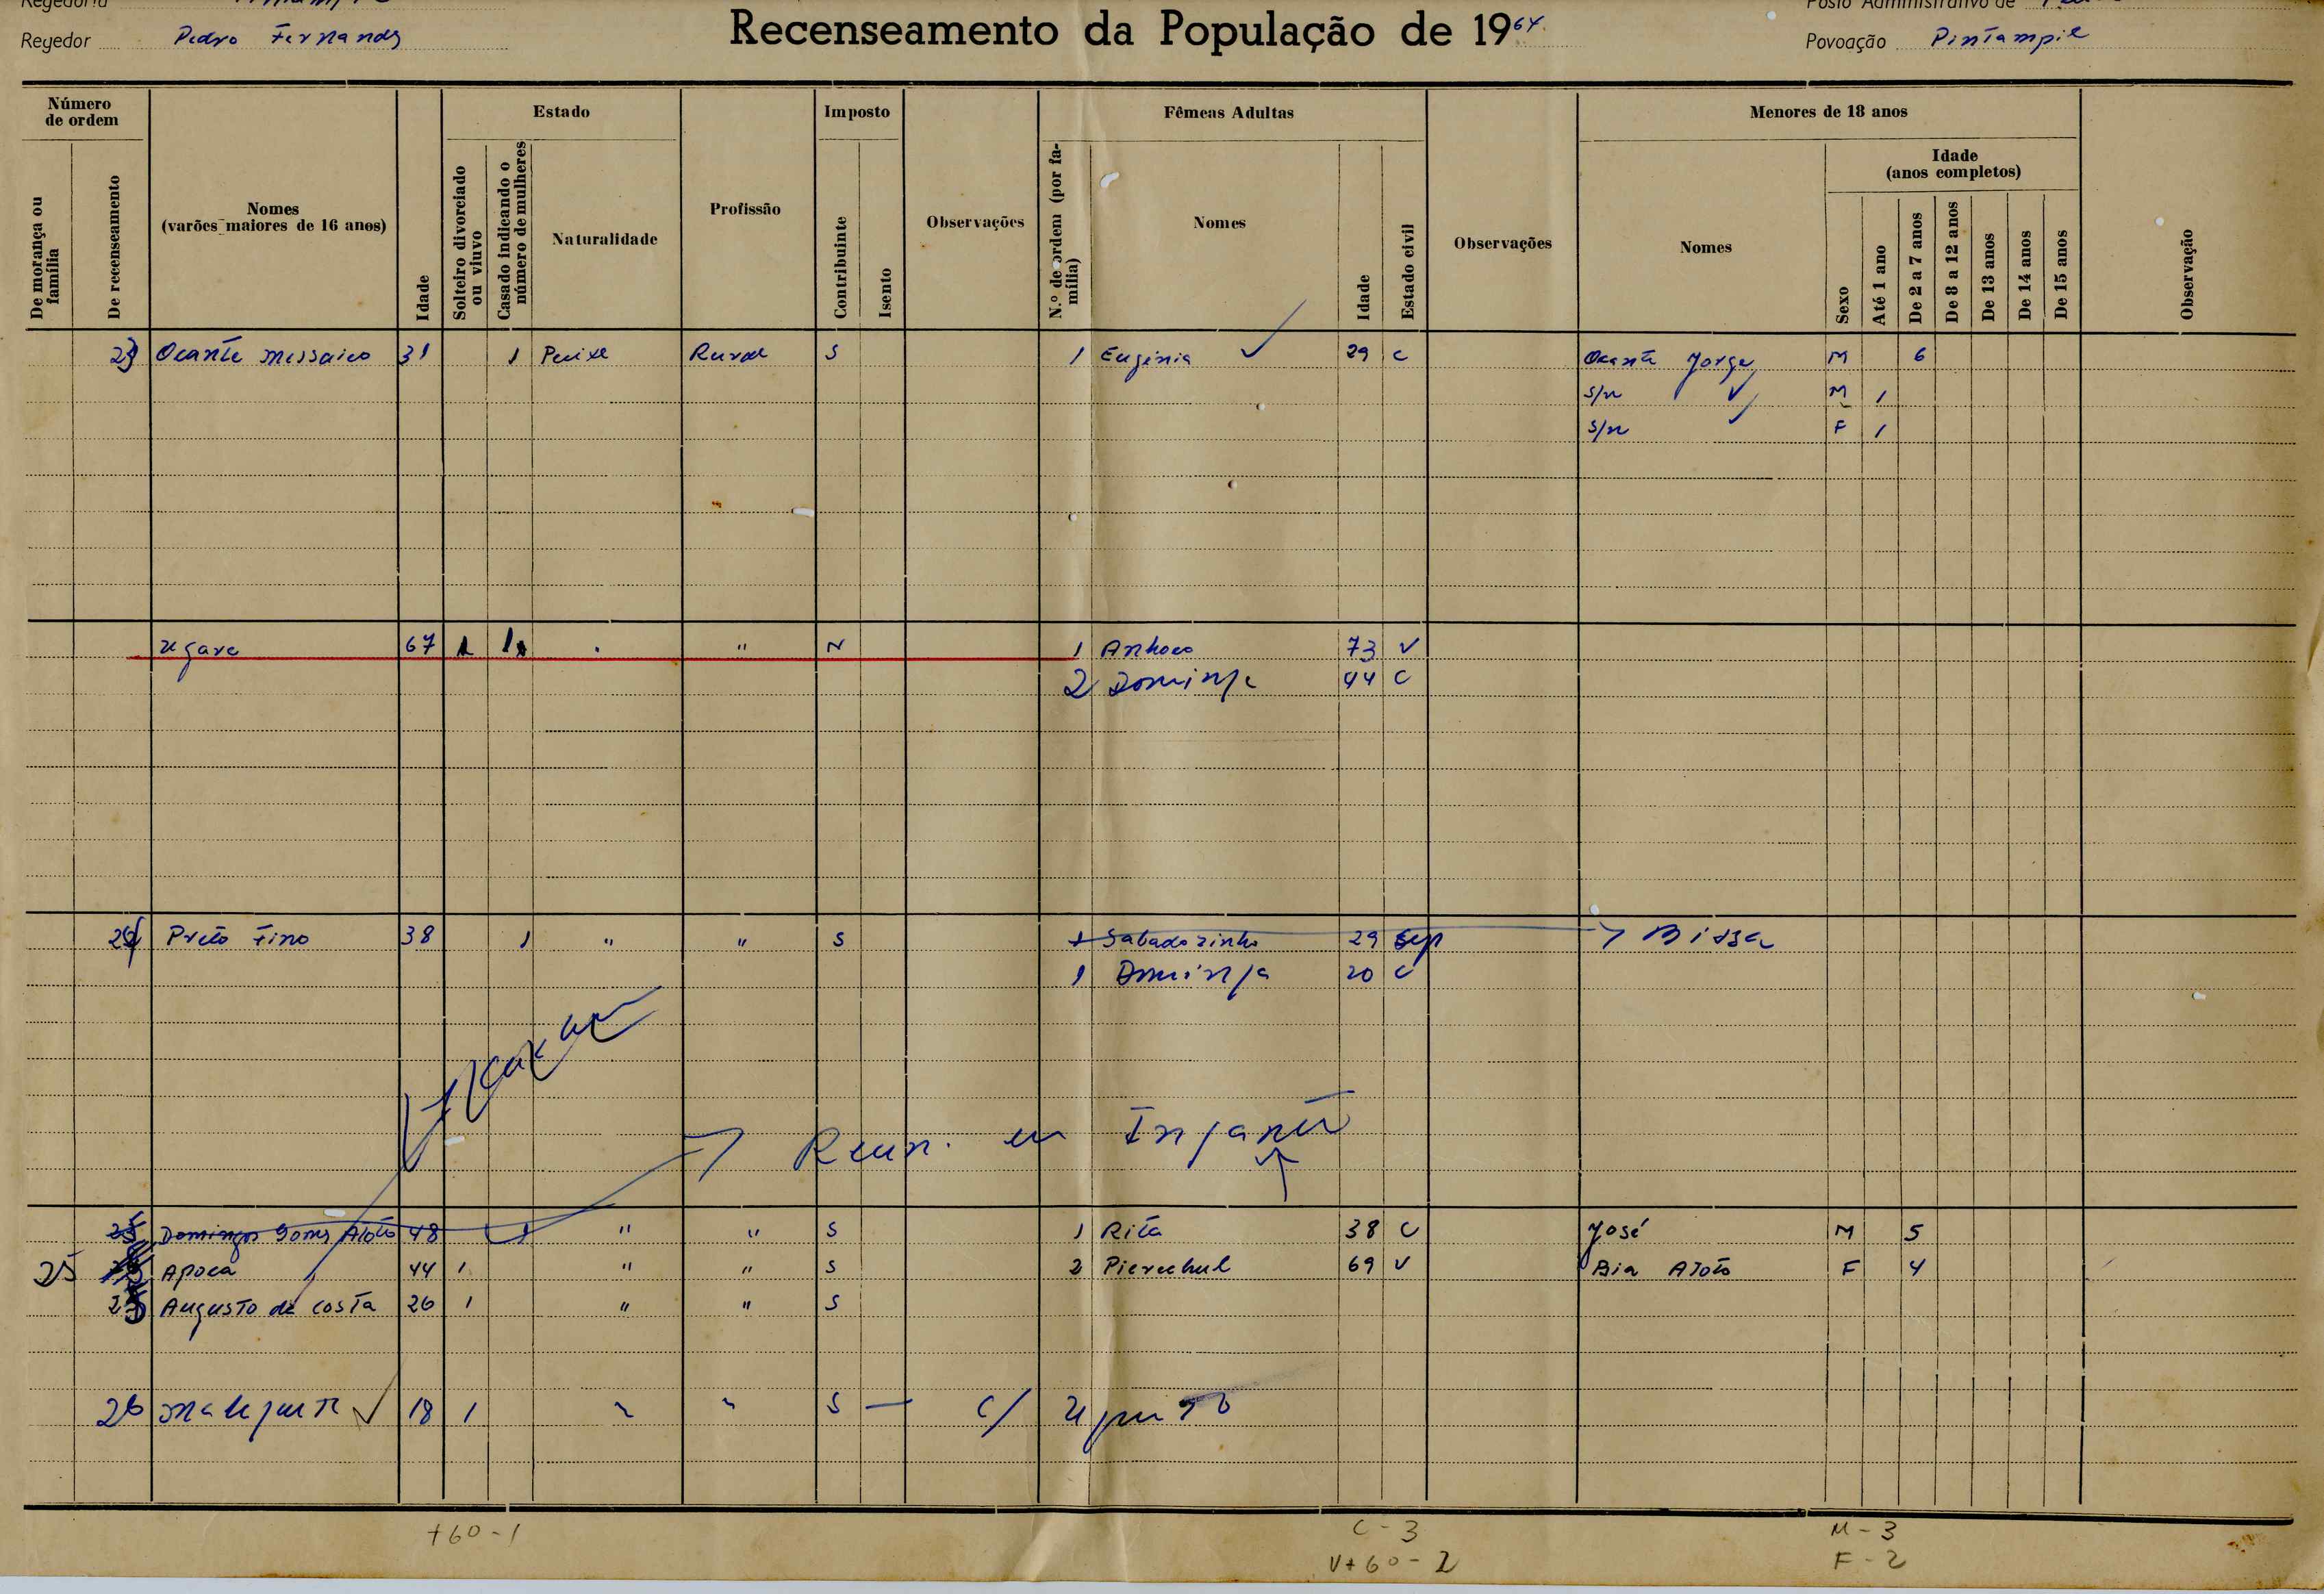 Regedoria
Posto Administrativo de
Regedor Pedro Fernandes
Recenseamento da População de 1964
Povoação Pintampil
Número de ordem
De morança ou família
De recenseamento
Nomes (varões maiores de 16 anos)
Idade
Estado
Solteiro divorciado ou viuvo
Casado indicando o número de mulheres
Naturalidade
Profissão
Imposto
Contribuinte
Isento
Observações
Fêmeas Adultas
N.º de ordem (por família)
Nomes
Idade
Estado civil
Observações
Menores de 18 anos
Nomes
Idade (anos completos)
Sexo
Até 1 ano
De 2 a 7 anos
De 8 a 12 anos
De 13 anos
De 14 anos
De 15 anos
Observação
23 Ocante Messaico 31 1 Peixe Rural S 1 Eugénia 29 C Ocante Jorge M 6
S/n M 1
S/n F 1
67 " N 1 Anhoco 73 V
2 Dominga 44 C
24 Preto Fino 38 1 " " S 1 Sabadozinho 29 Sep Bissa
1 Dominga 20 C
Recen. em
25 Domingos Gomes Atoto 48 1 " " S 1 Rita 38 C José M 5
25 Apoca 44 1 " " S 2 Pierechul 69 V Bia Atoto F 4
25 Augusto da Costa 26 1 " " S
26 18 1 " " S — c/
+60-1
C-3
M-3
V+60-2
F-2